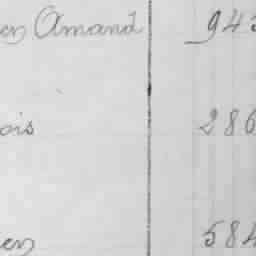 en Amand 943
ois 286
en 584